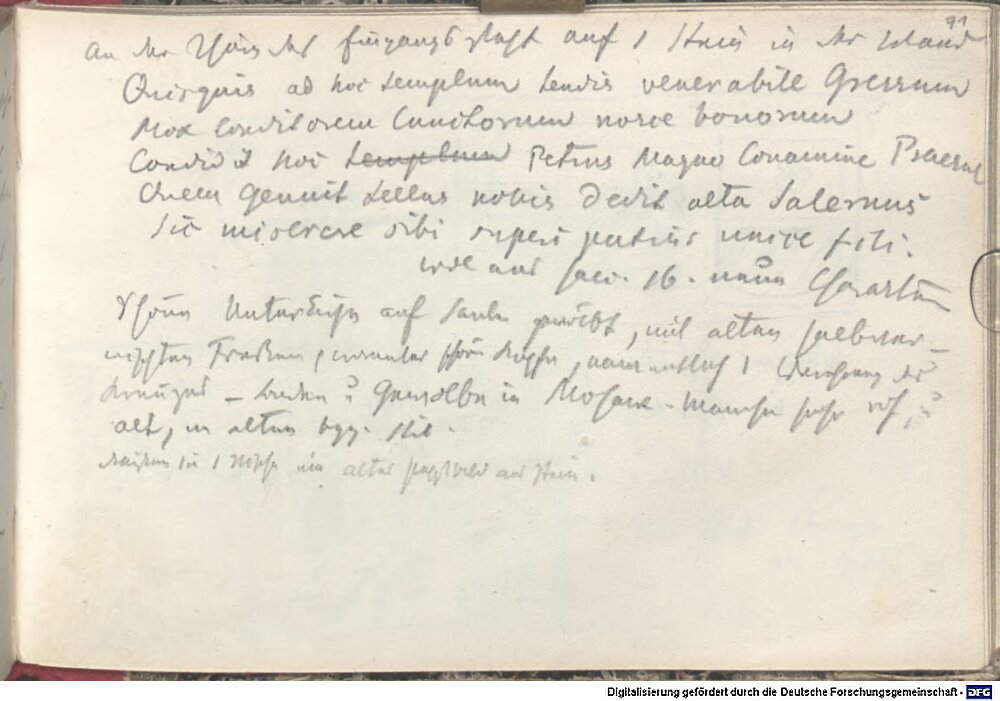 71
An der Thür des Eingangs steht auf 1 Stein in der Wand
Quisquis ad hoc templum tendis venerabile Gressum
Mox Conditorem Cunctorum nosce bonorum
Condidit hoc templum Petrus Magno Conamine Praesul
Quem Genuit tellus nobis Dedit alta Salernus
Sic miserere sibi superi patris unice fili.
wol aus saec. 16. neuen
Unterkirche auf Säulen gewölbt, mit alten halbver-
wischten Fresken, darunter schöne Köpfe, namentlich 1 des
Kreuzes – Säulen u Gewölbe in Mosaik. Manches sehr roh, u
alt, im alten byz. Stil.
in 1 Nische ein altes aus Stein.
Digitalisierung gefördert durch die Deutsche Forschungsgemeinschaft - DFG